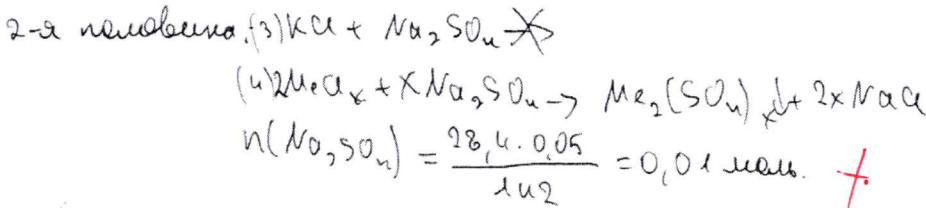 2-я половина. (3) KCl + Na₂SO₄ ↛
(4) 2MeClₓ + xNa₂SO₄ → Me₂(SO₄)ₓ↓ + 2xNaCl
n(Na₂SO₄) = 28,4 · 0,05 / 142 = 0,01 моль. +